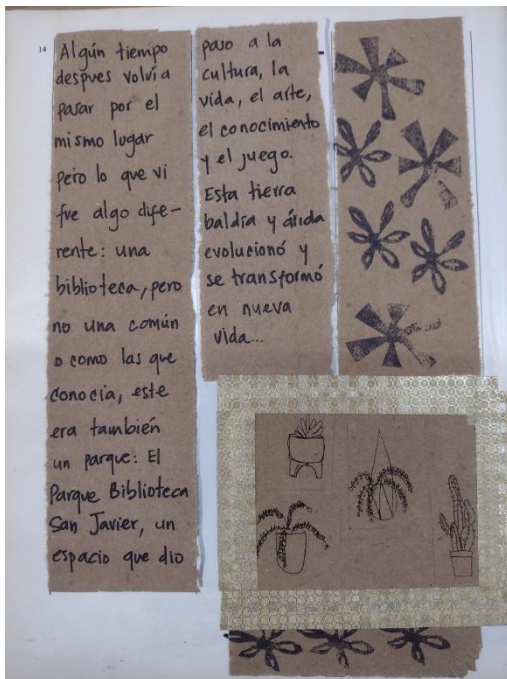 14
Algún tiempo
despues volví a
pasar por el
mismo lugar
pero lo que vi
fue algo dife-
rente: una
biblioteca, pero
no una común
o como las que
conocía, este
era también
un parque: El
Parque Biblioteca
San Javier, un
espacio que dio
paso a la
cultura, la
vida, el arte,
el conocimiento
y el juego.
Esta tierra
baldía y árida
evolucionó y
se transformó
en nueva
vida...